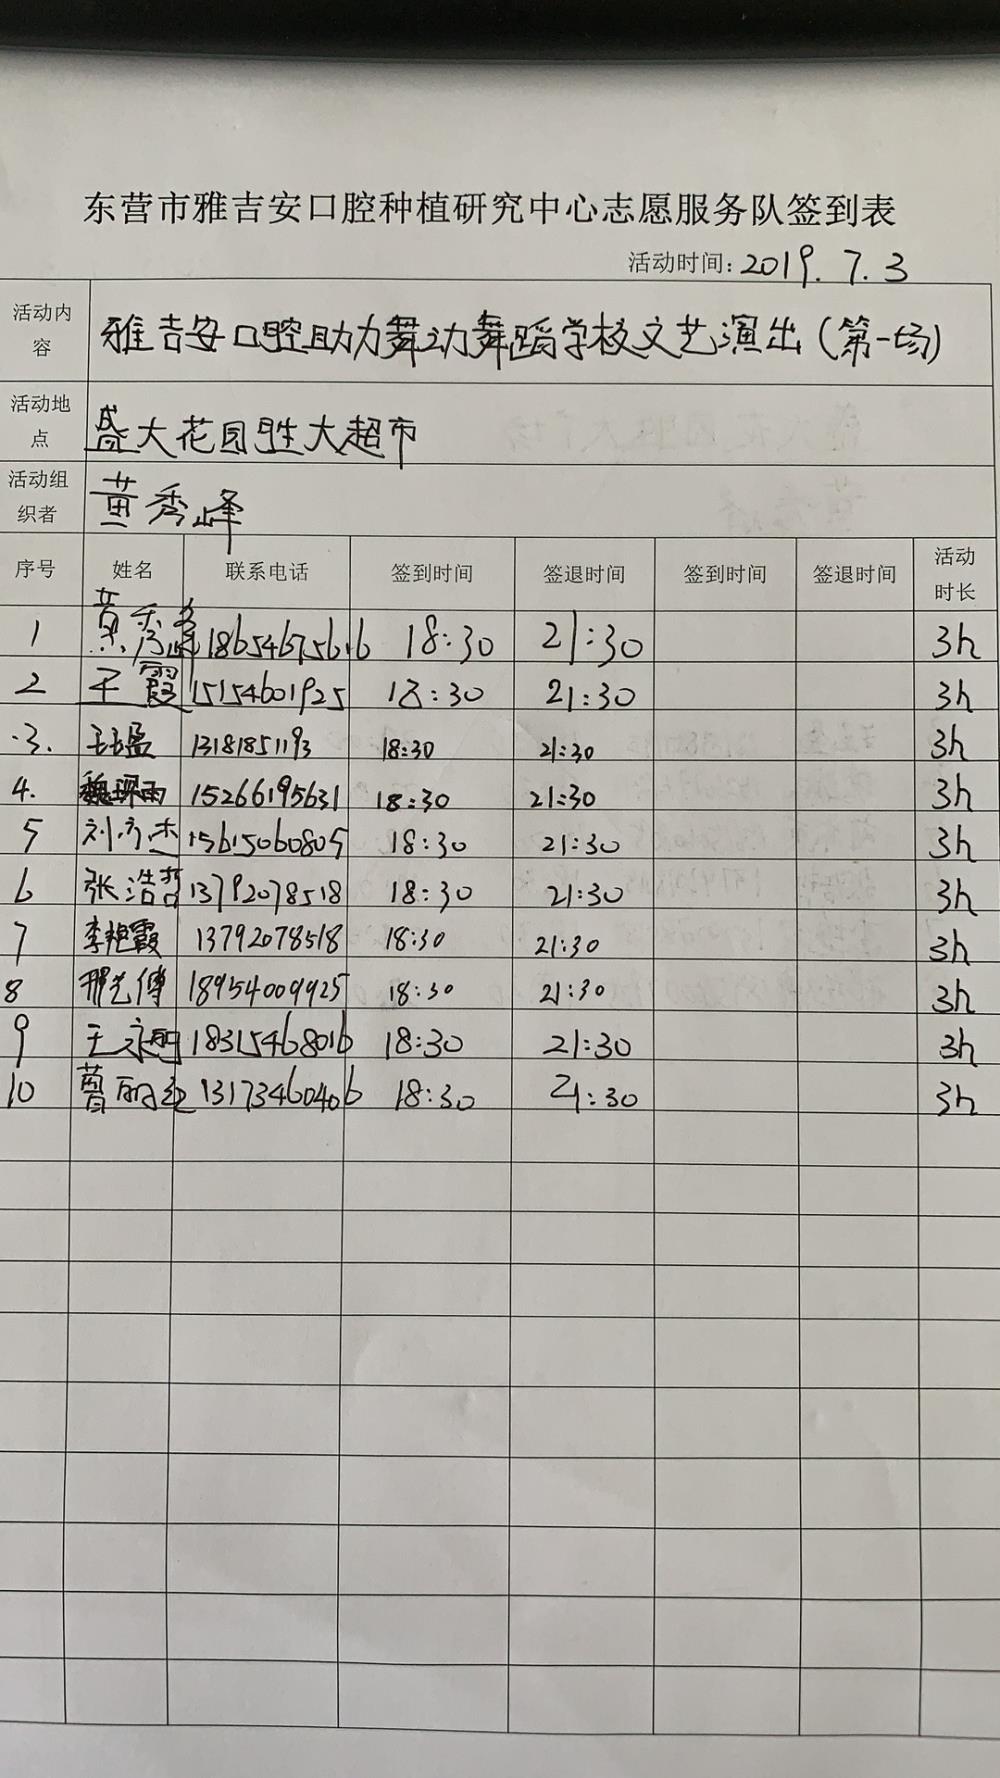 东营市雅吉安口腔种植研究中心志愿服务队签到表
活动时间: 2019.7.3
活动内容 雅吉安口腔助力舞动舞蹈学校文艺演出(第一场)
活动地点 盛大花园胜大超市
活动组织者 黄秀峰
序号 姓名 联系电话 签到时间 签退时间 签到时间 签退时间 活动时长
1 黄秀峰 18654675616 18:30 21:30 3h
2 王霞 15154601925 18:30 21:30 3h
3. 王孟 13181851193 18:30 21:30 3h
4. 魏琛雨 15266195631 18:30 21:30 3h
5 刘彦杰 15615060805 18:30 21:30 3h
6 张浩哲 13792078518 18:30 21:30 3h
7 李艳霞 13792078518 18:30 21:30 3h
8 18954009925 18:30 21:30 3h
9 王永明 18315468016 18:30 21:30 3h
10 13173460406 18:30 21:30 3h